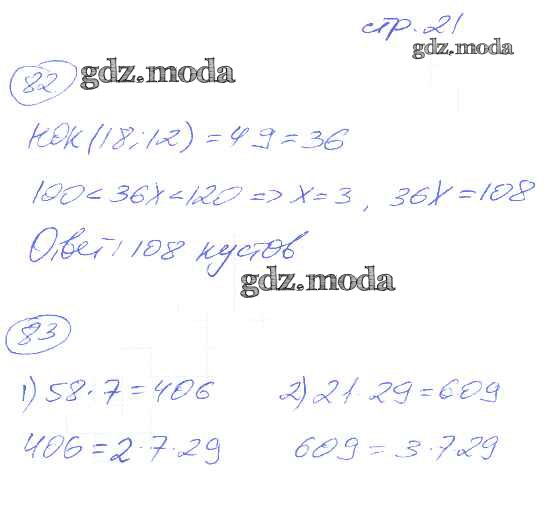 стр. 21
gdz.moda
82 gdz.moda
НОК(18;12) = 4·9 = 36
100 < 36X < 120 => X = 3, 36X = 108
Ответ: 108 кустов
gdz.moda
83
1) 58·7 = 406 2) 21·29 = 609
406 = 2·7·29 609 = 3·7·29